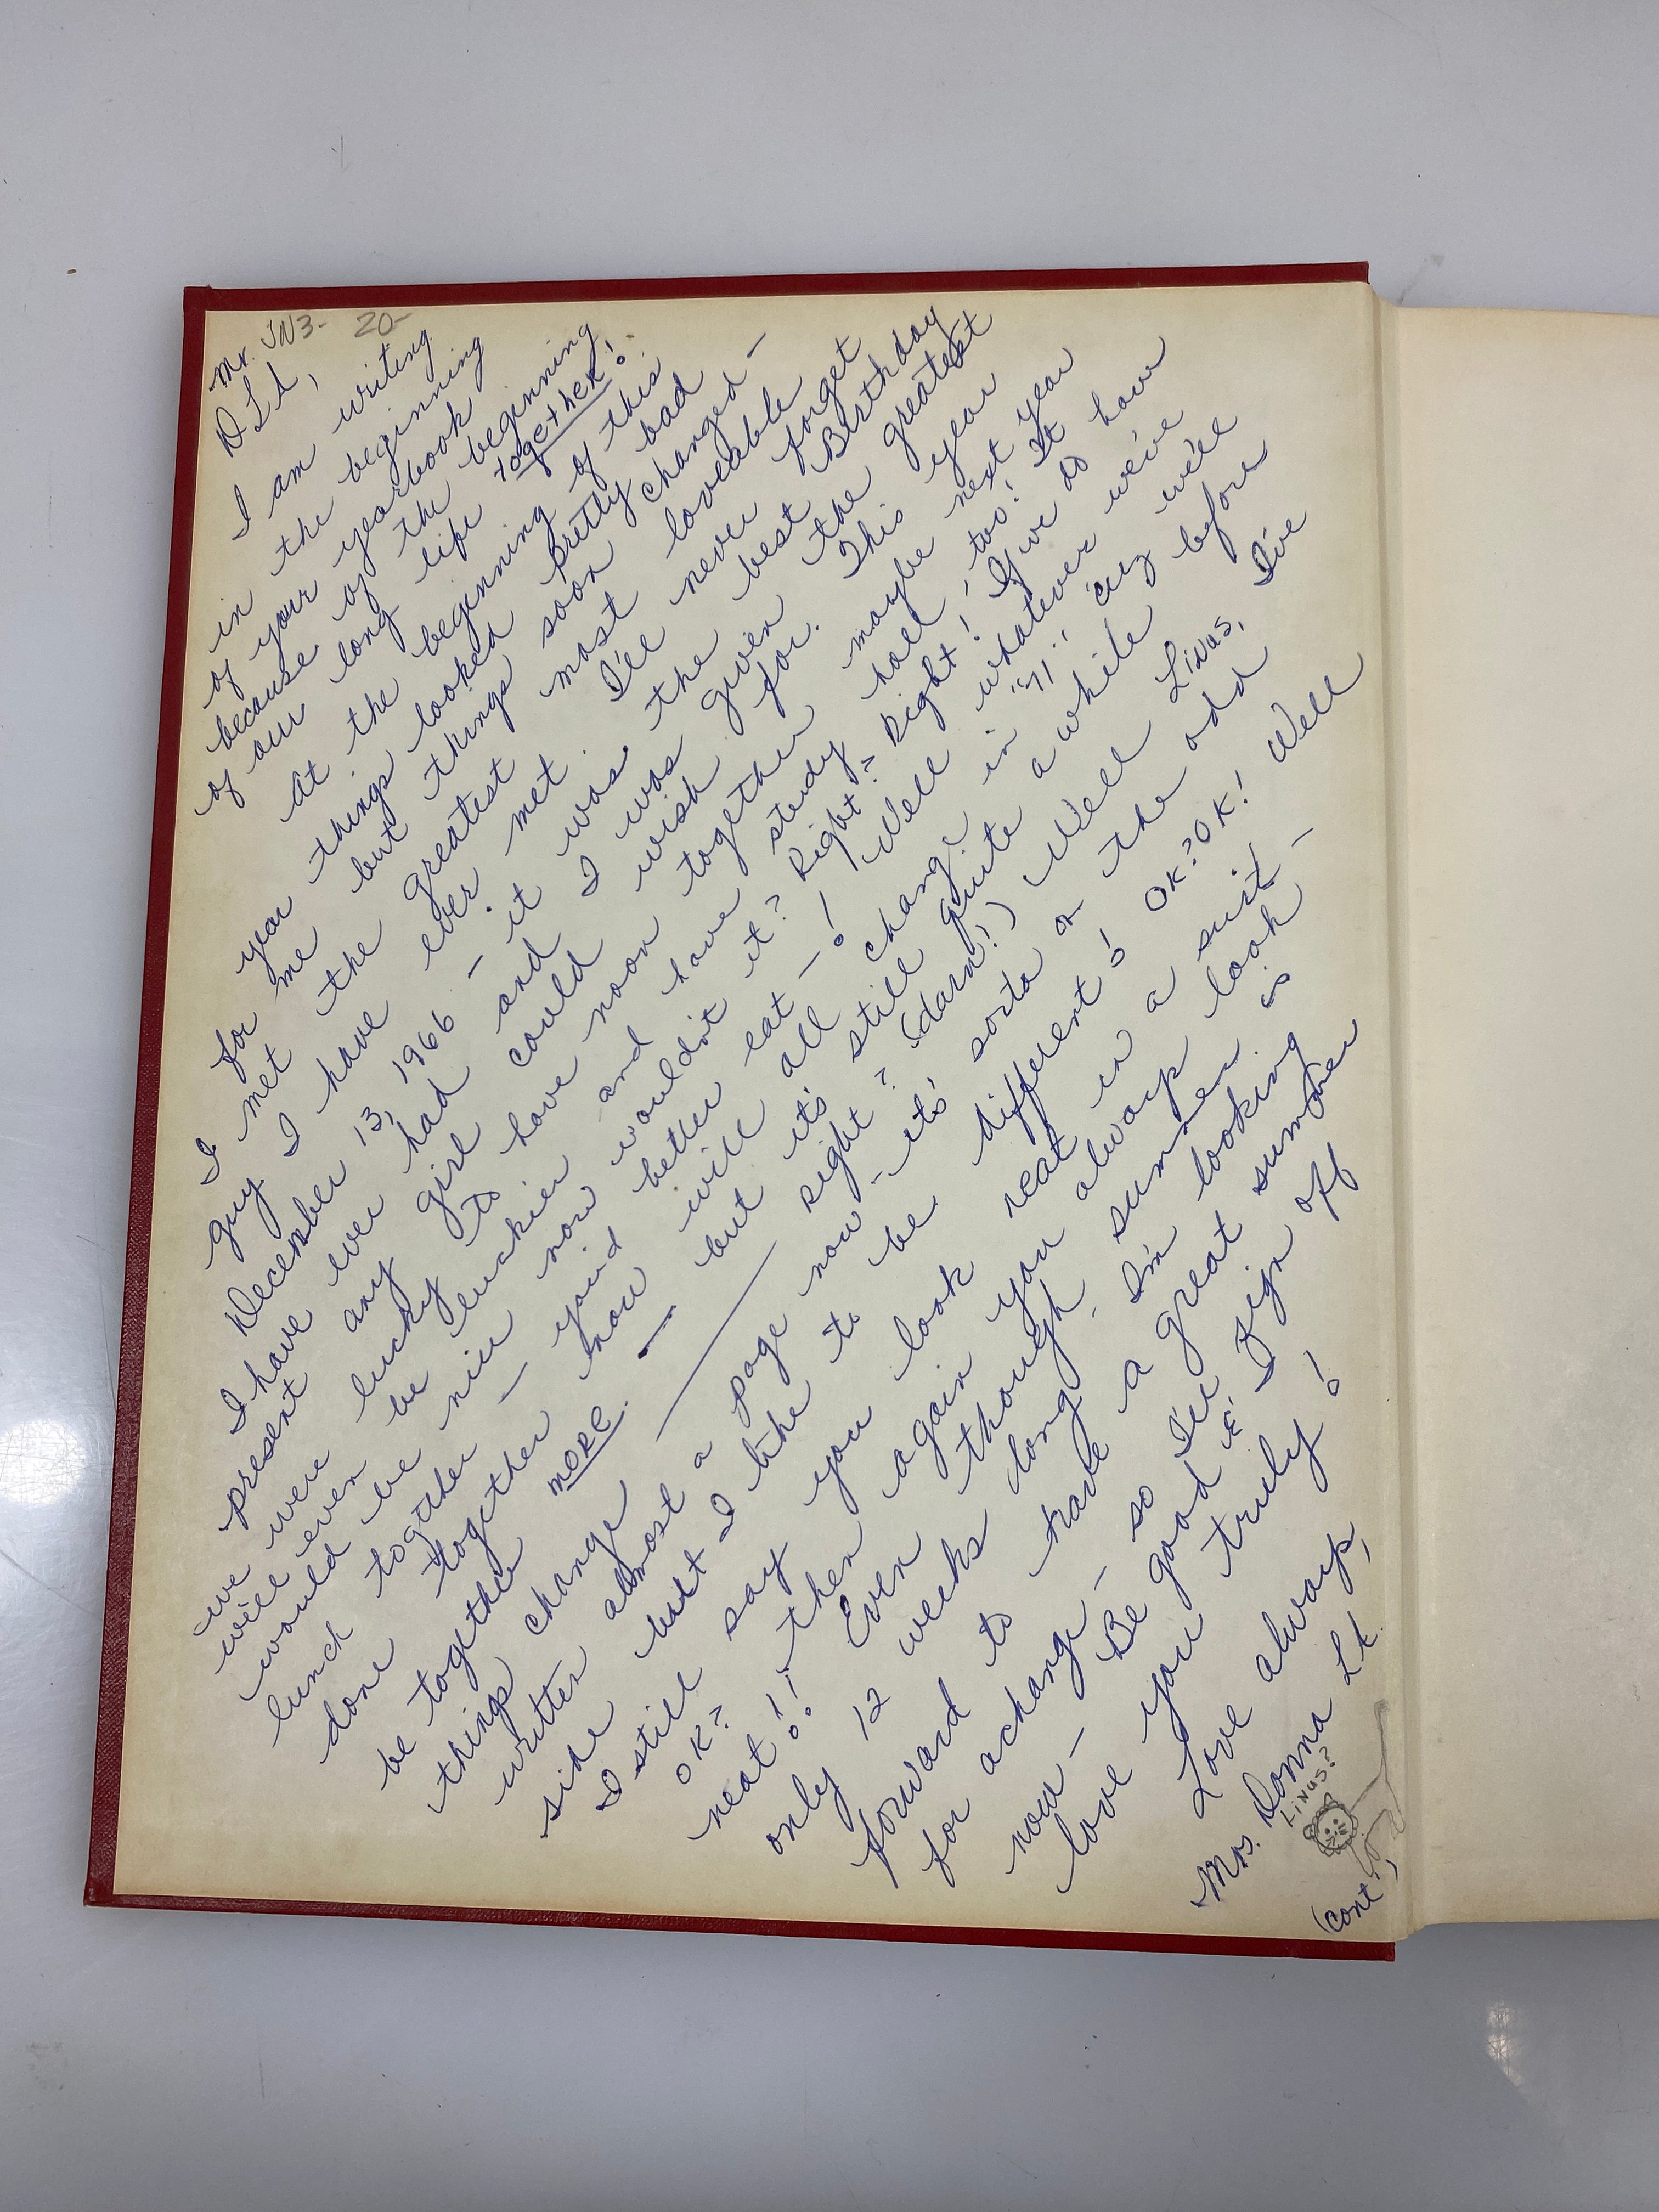 JN3- 20-
Mr. D. Lt,
I am writing
in the beginning
of your yearbook
because of the beginning
of our long life together!
At the beginning of this
year things looked pretty bad
for me but things soon changed -
I met the greatest most loveable
guy I have ever met. I'll never forget
December 13, 1966 - it was the best Birthday
I have ever had and I was given the greatest
present any girl could wish for. This year
we were lucky to have noon together maybe next year
we'll even be luckier and have study hall, too! It
would be nice now wouldn't it? Right? Right! If we do have
lunch together - you'd better eat -! Well whatever we've
done together now will all change in '71!! 'cuz we'll
be together more. - but it's still quite a while before
things change right? (darn!) Well Linus, I've
written almost a page now - it's sorta on the odd
side but I like to be different! OK? OK! Well
I still say you look neat in a suit -
OK? then again you always look
neat!! Even though summer is
only 12 weeks long - I'm looking
forward to have a great summer
for a change - so I'll sign off
now - Be good & I
love you truly!
Love always,
Mrs. Donna Lt.
Linus?
(cont.)